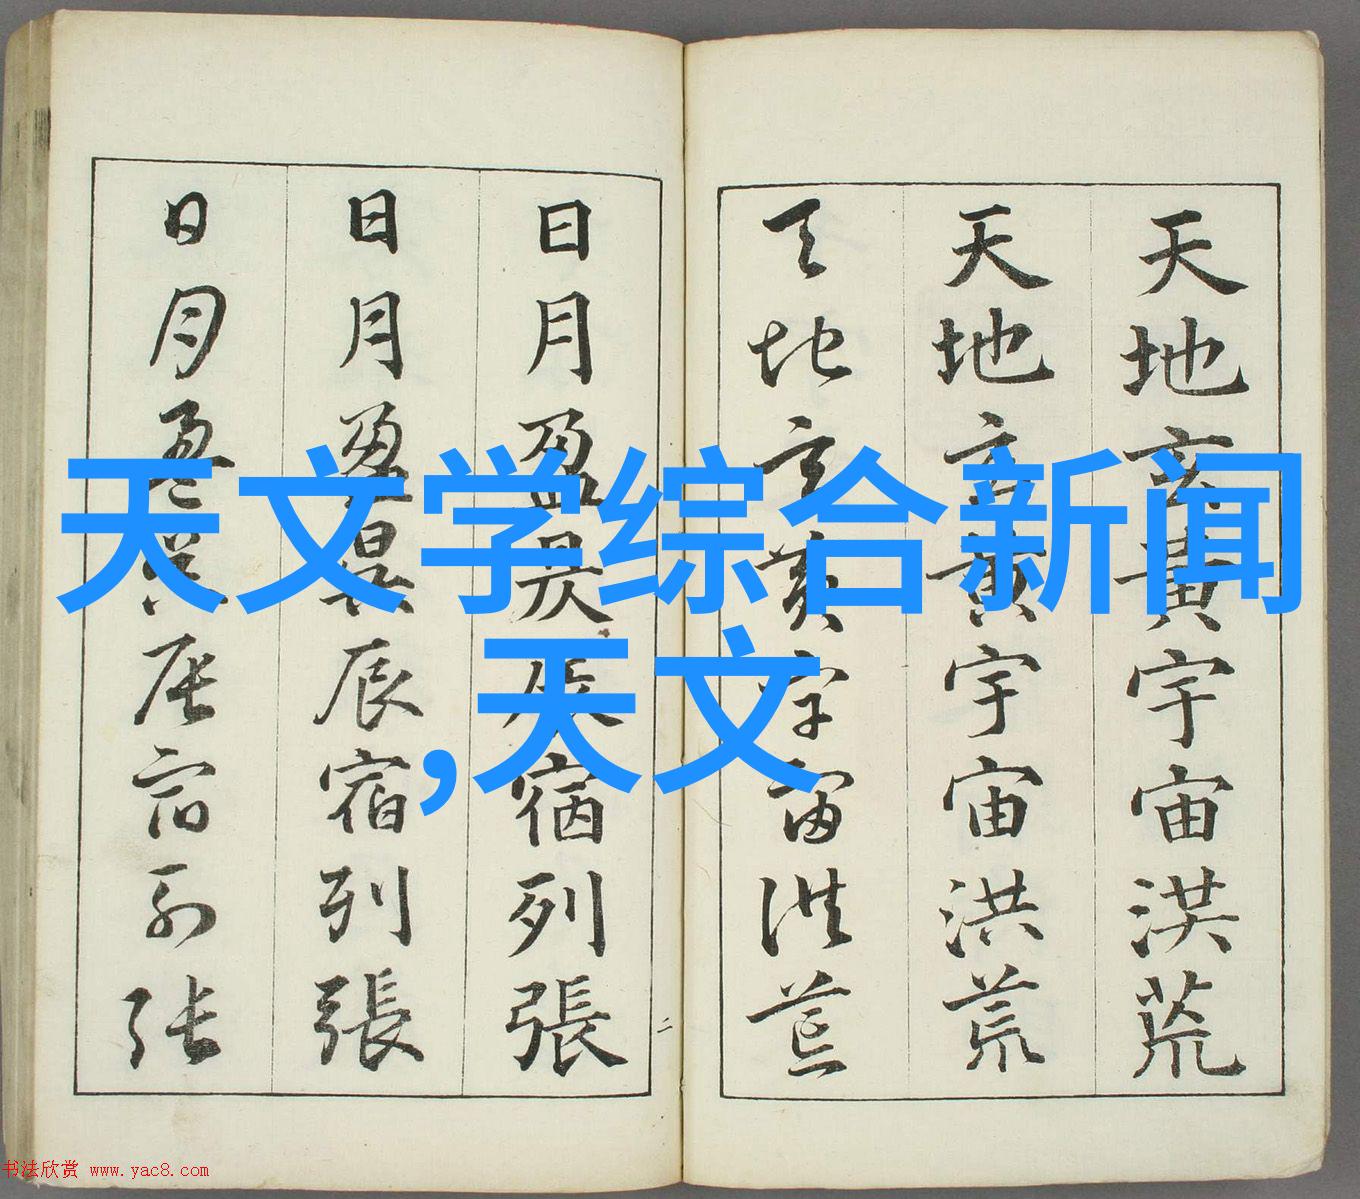 天地玄黃宇宙洪荒
天地玄黃宇宙洪荒
天地玄黃宇宙洪荒
日月盈昃辰宿列張
日月盈昃辰宿列張
日月盈昃辰宿列張
二
天文学综合新闻
,天文
书法欣赏 www.yac8.com